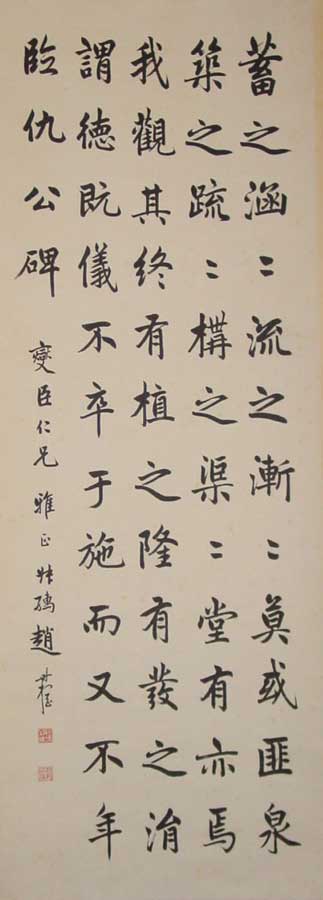 蓄之涵〻流之漸〻莫或匪泉
築之疏〻構之渠〻堂有亦焉
我觀其終有植之隆有發之涓
謂德既儀不卒于施而又不年
臨仇公碑 燮臣仁兄 雅正 趙